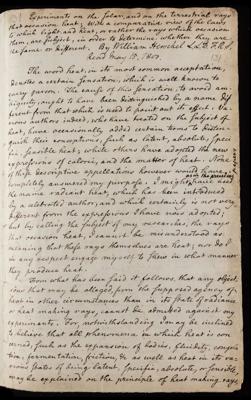 Experiments on the solar, and on the terrestrial rays
that occasion heat; With a comparative view of the laws
to which light and heat, or rather the rays which occasion
them, are subject, in order to determine whether they are
the same or different. By William Herschel L.L.D. F.R.S.
Read May 15, 1800.
The word heat, in its most common acceptation,
denotes a certain sensation, which is well known to
every person. The cause of this sensation, to avoid am-
biguity, ought to have been distinguished by a name dif-
ferent from that which is used to point out its effect. Va-
rious authors indeed, who have treated on the subject of
heat, have occasionally added certain terms to distin-
guish their conceptions, such as latent, absolute, speci-
fic, sensible heat; while others have adopted the new
expressions of caloric, and the matter of heat. None
of these descriptive appellations however would have
completely answered my purpose. I might have used
the name radiant heat, which has been introduced
by a celebrated author, and which certainly is not very
different from the expressions I have now adopted;
but by calling the subject of my researches, the rays
that occasion heat, I cannot be misunderstood as
meaning that these rays themselves are heat; nor do I
in any respect engage myself to shew in what manner
they produce heat.
From what has been said it follows, that any objec-
tions that may be alleged from the supposed agency of
heat in other circumstances than in its state of radiance
or heat making rays, cannot be admitted against my
experiments. For, notwithstanding I may be inclined
to believe that all phenomena in which heat is con-
cerned, such as the expansion of bodies, fluidity, congela-
tion, fermentation, friction, &c as well as heat in its va-
rious states of being latent, specific, absolute, or sensible,
may be explained on the principle of heat making rays,